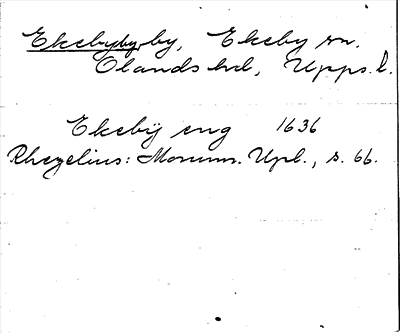 Ekebyby, Ekeby sn.
Olands hd, Upps. l.
Ekebÿ eng 1636
Rhezelius: Monum. Upl., s. 66.